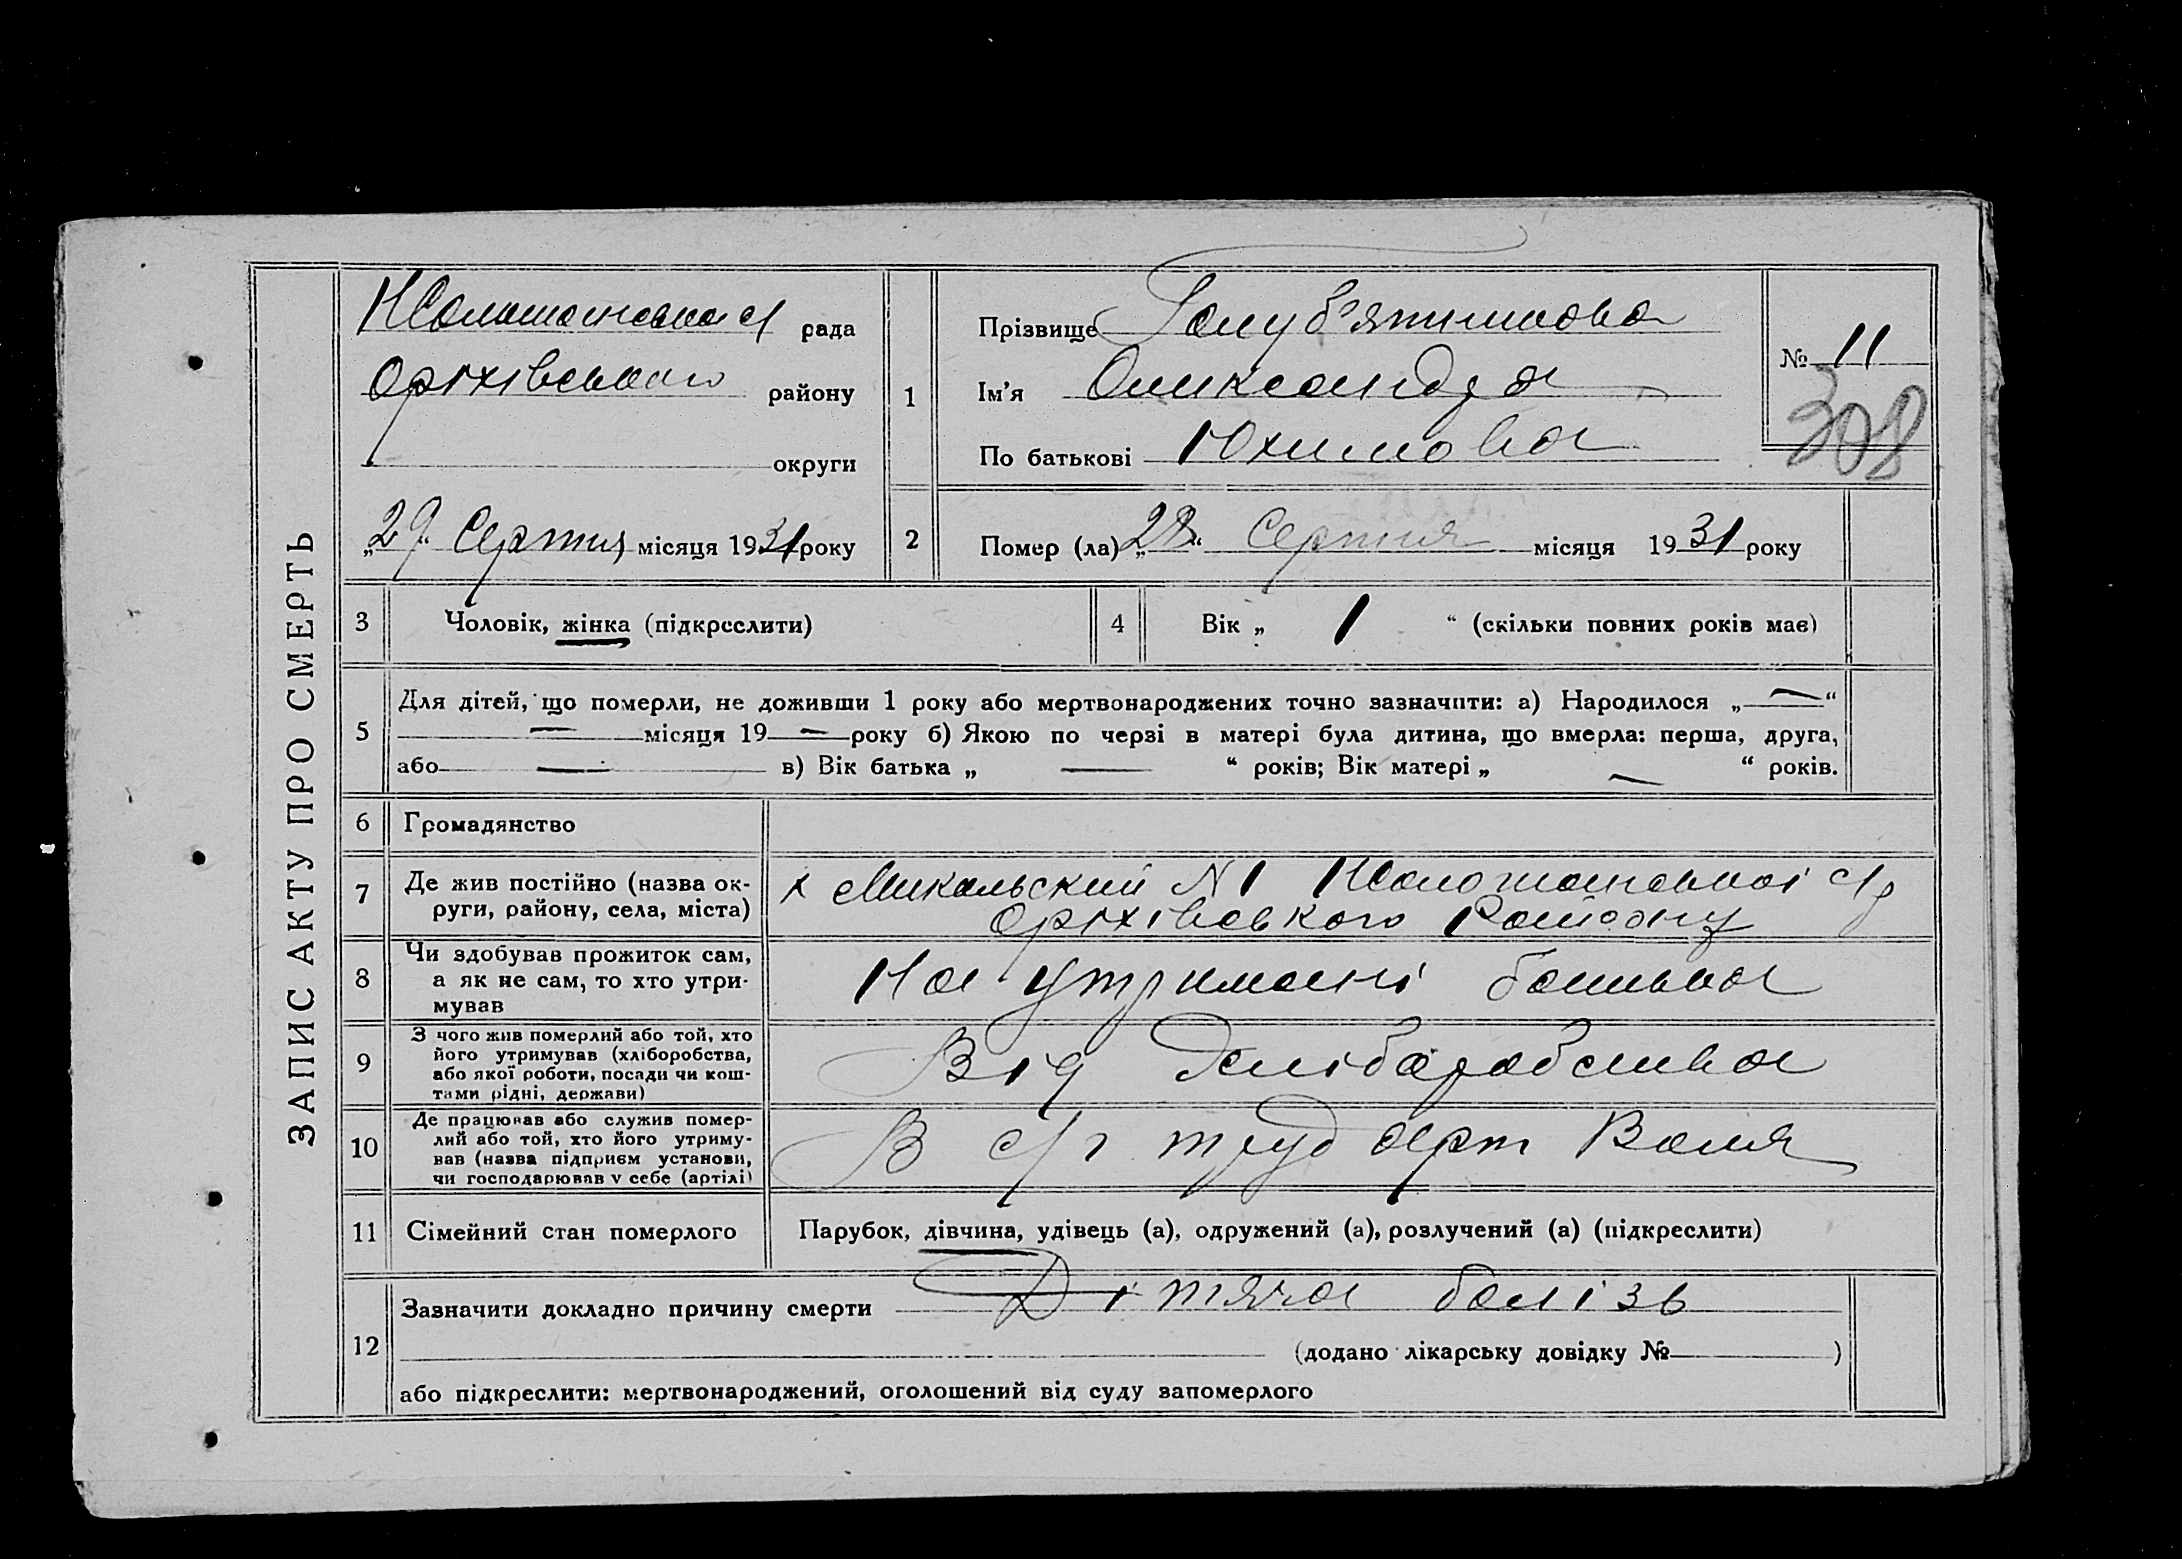 ЗАПИС АКТУ ПРО СМЕРТЬ
рада
Оріхівського району
округи
„29“ Серпня місяця 1931 року
1
Прізвище Голуб'ятникова
Ім'я Олександра
По батькові Юхимова
№ 11
308
2
Помер (ла) „28“ Серпня місяця 1931 року
3 Чоловік, жінка (підкреслити)
4 Вік „ 1 “ (скільки повних років має)
5 Для дітей, що померли, не доживши 1 року або мертвонароджених точно зазначити: а) Народилося „—“
— місяця 19 — року б) Якою по черзі в матері була дитина, що вмерла: перша, друга,
або — в) Вік батька „ — “ років; Вік матері „ — “ років.
6 Громадянство
7 Де жив постійно (назва ок-
руги, району, села, міста)
х Микальский N 1 с/р
Оріхівського Району
8 Чи здобував прожиток сам,
а як не сам, то хто утри-
мував
На утримані батька
9 З чого жив померлий або той, хто
його утримував (хліборобства,
або якої роботи, посади чи кош-
тами рідні, держави)
Від хліборобства
10 Де працював або служив помер-
лий або той, хто його утриму-
вав (назва підприєм установи,
чи господарював у себе (артілі)
В с/г труд арт Воля
11 Сімейний стан померлого
Парубок, дівчина, удівець (а), одружений (а), розлучений (а) (підкреслити)
12 Зазначити докладно причину смерти Дітяча болізь
(додано лікарську довідку № )
або підкреслити: мертвонароджений, оголошений від суду запомерлого